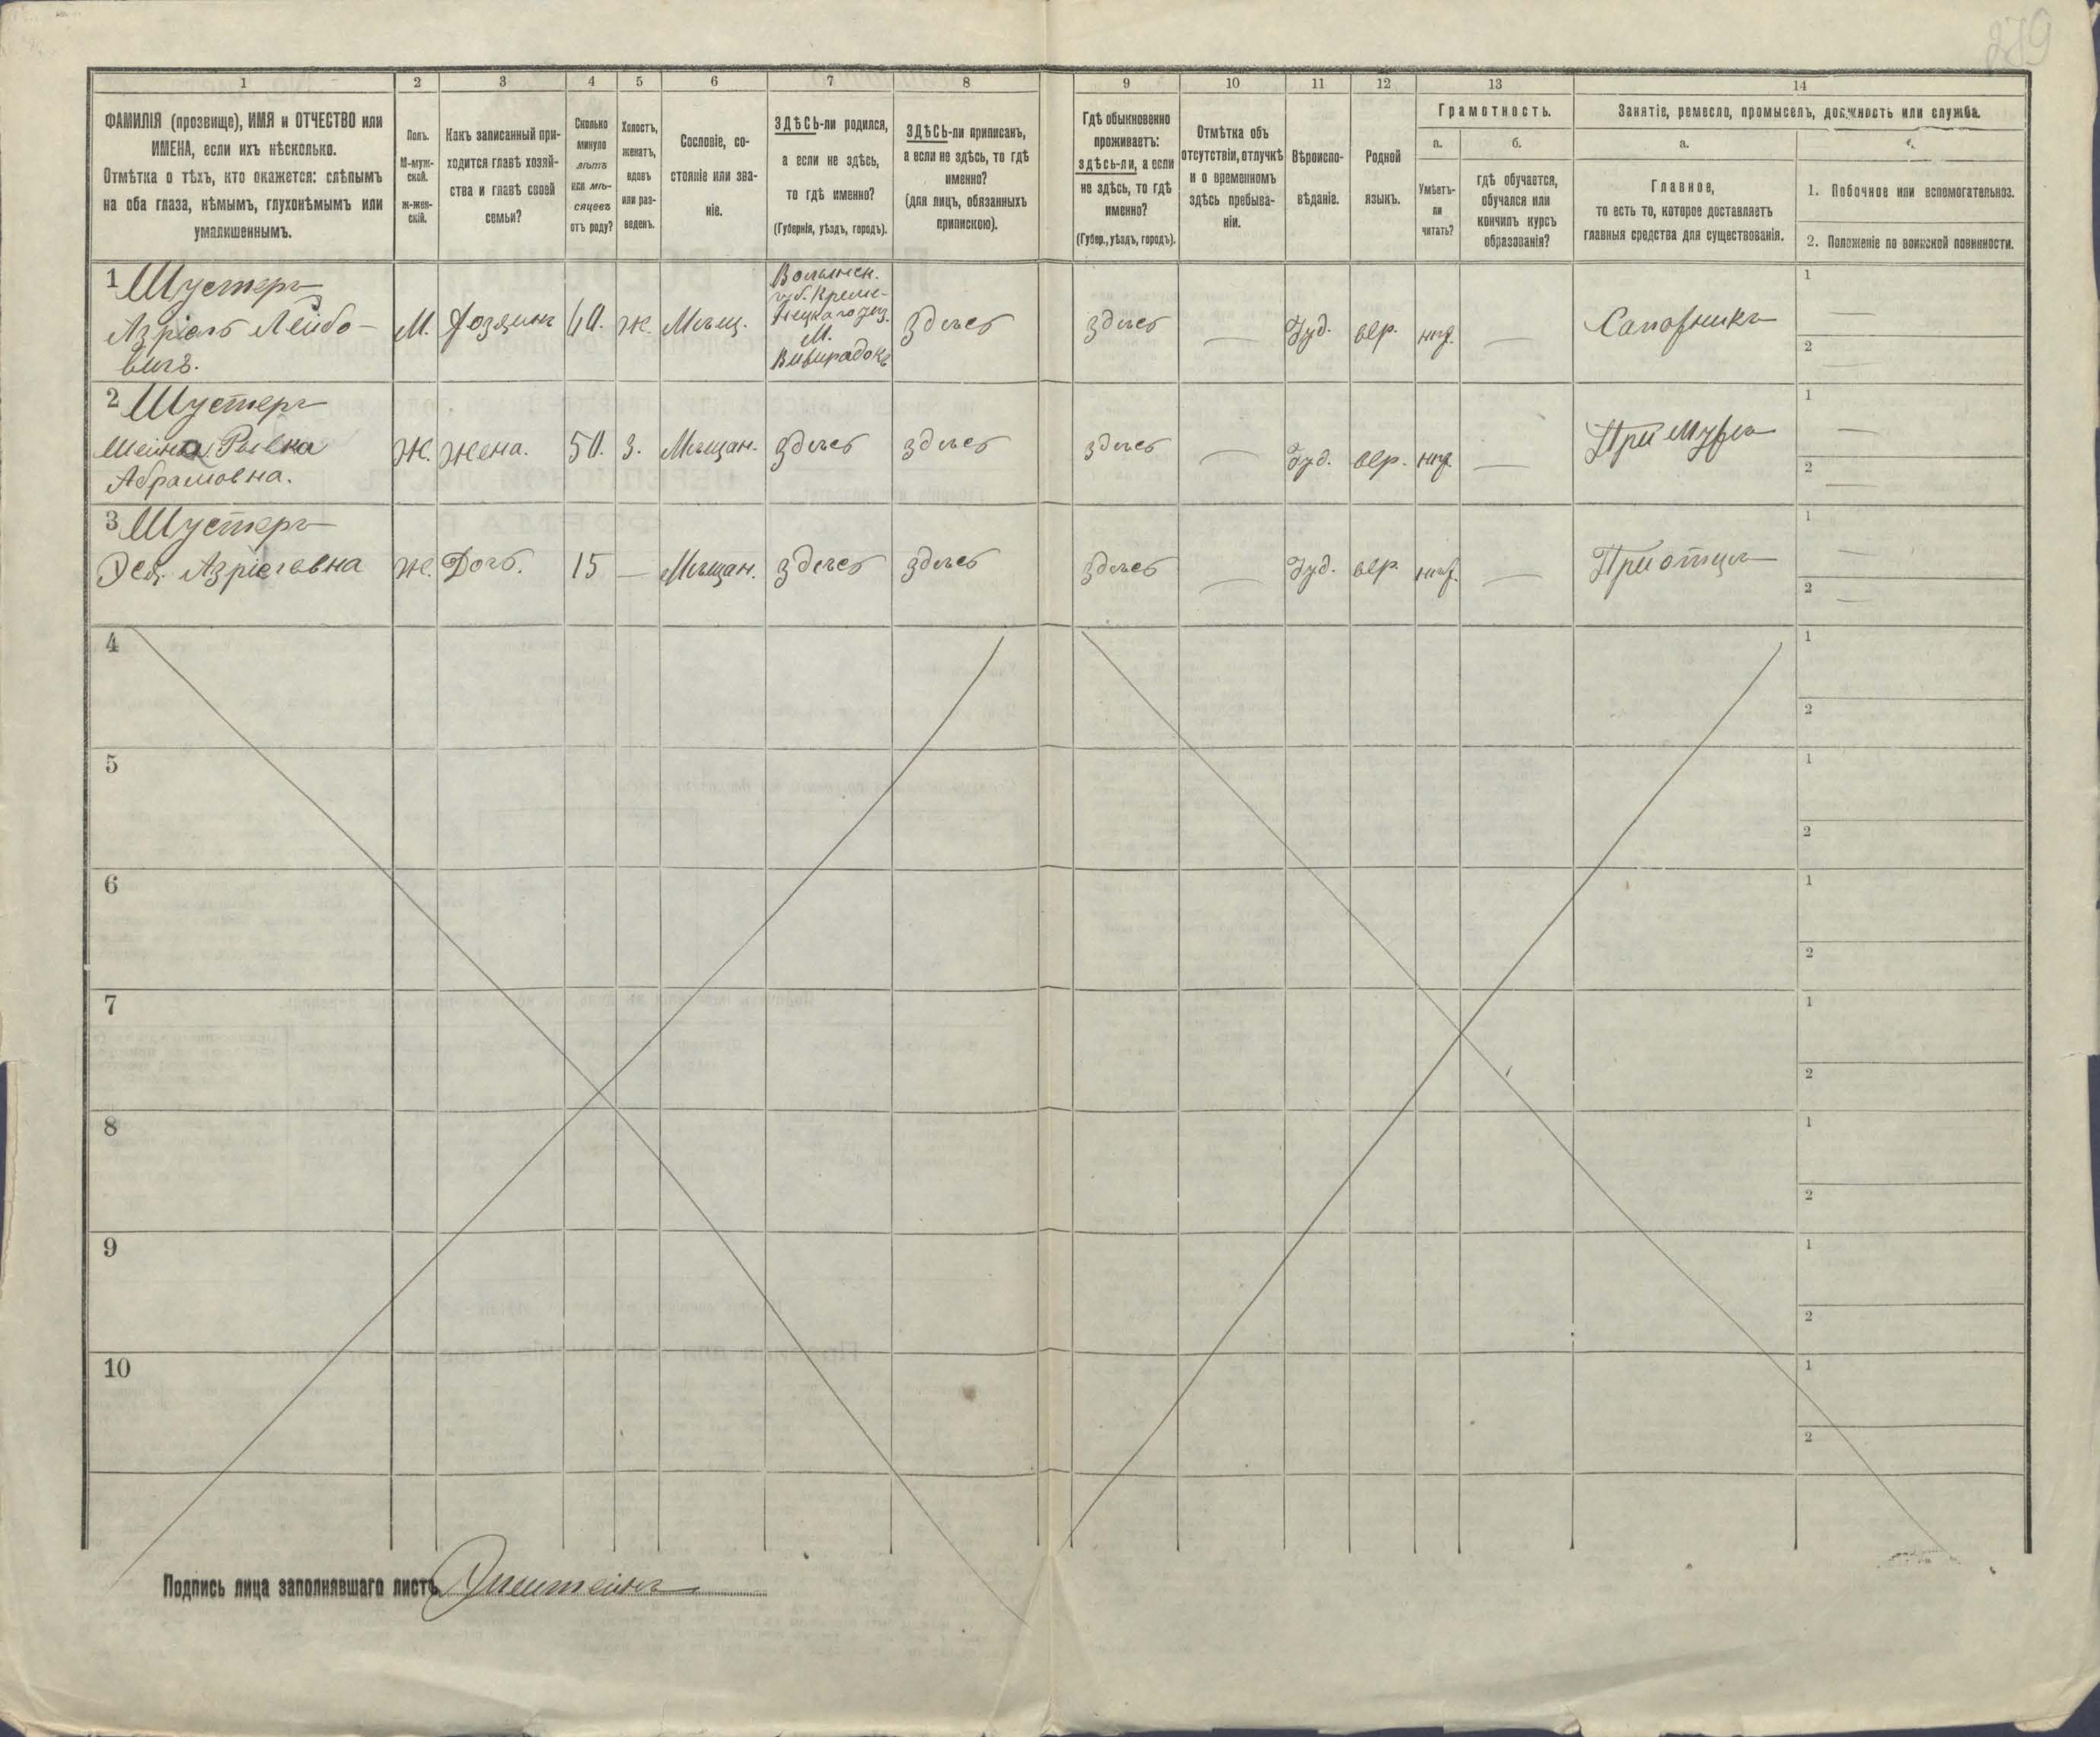 279
1 2 3 4 5 6 7 8 9 10 11 12 13 14
ФАМИЛІЯ (прозвище), ИМЯ и ОТЧЕСТВО или
ИМЕНА, если ихъ нѣсколько.
Отмѣтка о тѣхъ, кто окажется: слѣпымъ
на оба глаза, нѣмымъ, глухонѣмымъ или
умалишеннымъ.
Полъ.
М-муж-
ской.
ж-жен-
скій.
Какъ записанный при-
ходится главѣ хозяй-
ства и главѣ своей
семьи?
Сколько
минуло
лѣтъ
или мѣ-
сяцевъ
отъ роду?
Холостъ,
женатъ,
вдовъ
или раз-
веденъ.
Сословіе, со-
стояніе или зва-
ніе.
ЗДѢСЬ-ли родился,
а если не здѣсь,
то гдѣ именно?
(Губернія, уѣздъ, городъ).
ЗДѢСЬ-ли приписанъ,
а если не здѣсь, то гдѣ
именно?
(для лицъ, обязанныхъ
припискою).
Гдѣ обыкновенно
проживаетъ:
здѣсь-ли, а если
не здѣсь, то гдѣ
именно?
(Губер., уѣздъ, городъ).
Отмѣтка объ
отсутствіи, отлучкѣ
и о временномъ
здѣсь пребыва-
ніи.
Вѣроиспо-
вѣданіе.
Родной
языкъ.
Грамотность.
а.
Умѣетъ-
ли
читать?
б.
гдѣ обучается,
обучался или
кончилъ курсъ
образованія?
Занятіе, ремесло, промыселъ, должность или служба.
а.
Главное,
то есть то, которое доставляетъ
главныя средства для существованія.
1. Побочное или вспомогательное.
2. Положеніе по воинской повинности.
1 Шустеръ
Азріель Лейбо-
вичъ.
М.
Хозяинъ
60.
Ж.
Мѣщ.
Волынск.
губ. Креме-
нецкаго уѣз.
М.
здѣсь
здѣсь
—
Іуд.
евр.
нѣт.
—
Сапожникъ
1 —
2 —
2 Шустеръ
Шейна Рывка
Абрамовна.
Ж.
Жена.
50.
З.
Мѣщан.
здѣсь
здѣсь
здѣсь
—
Іуд.
евр.
нѣт.
—
При мужѣ
1 —
2 —
3 Шустеръ
Азріелевна
Ж.
Дочь.
15
—
Мѣщан.
здѣсь
здѣсь
здѣсь
—
Іуд.
евр.
нѣт.
—
При отцѣ
1 —
2 —
4
1
2
5
1
2
6
1
2
7
1
2
8
1
2
9
1
2
10
1
2
Подпись лица заполнявшаго листъ